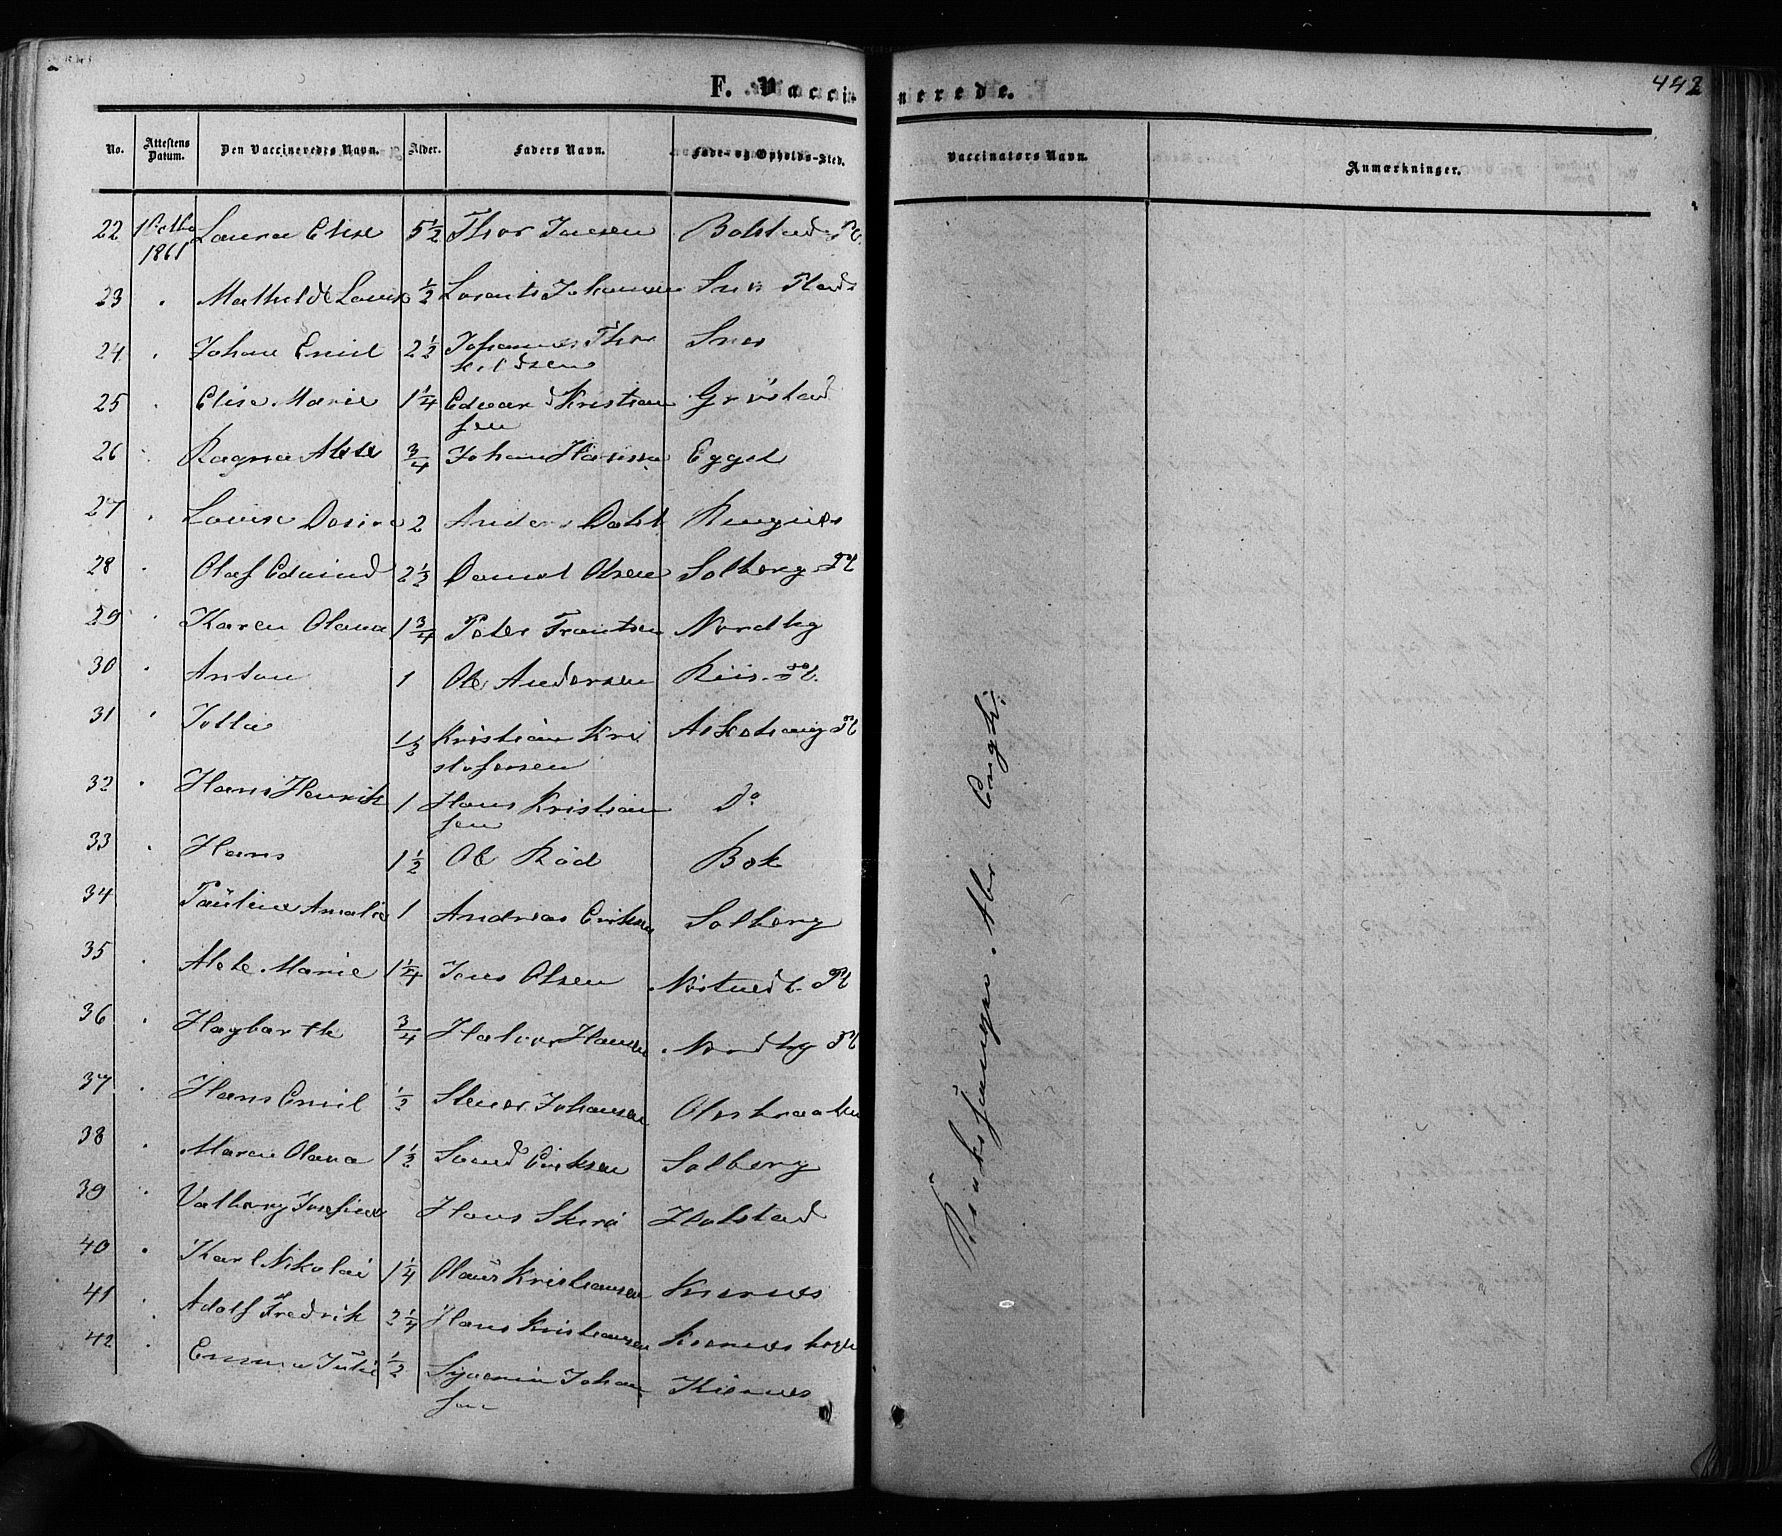 F. Vaccinerede.
442
No. Attestens Datum. Den Vaccineredes Navn. Alder. Faders Navn. Føde- og Opholds-Sted. Vaccinators Navn. Anmærkninger.
22 1861 Laura Elise 5 1/2 Thor Jensen Bolstad Pl
23 " Mathilde Louise 1/2 Lorents Johansen Plads
24 " Johan Emil 2 1/2 Johannes Thor
kildsen
25 " Elise Marie 1 1/4 Edvard Kristian Grøstad
sen
26 " Ragna 3/4 Johan Hansen Egget
27 " Louise 2 Anders Dahl Ringnes
28 " Olaf Edvind 2 1/2 Daniel Olsen Solberg Pl
29 " Karen Olava 1 3/4 Peter Frantsen Nordby
30 " Anton 1 Ole Andersen Riis Pl.
31 " Jolla 1/2 Kristian Kri Askehaug Pl
stofersen
32 " Hans Henrik 1 Hans Kristian Do
sen
33 " Hans 1 1/2 Ole Röd Bæk
34 " Pauline Amalie 1 Andreas Eriksen Solberg
35 " Alete Marie 1 1/4 Jens Olsen Pl
36 " Hagbarth 3/4 Halvor Hansen Nordby Pl
37 " Hans Emil 1/2 Stener Johansen
38 " Maren Olava 1 1/2 Eriksen Solberg
39 " Valborg Josefine Hans Holstad
40 " Karl Nikolai 1 1/4 Olaus Kristiansen Kjernes
41 " Adolf Fredrik 2 1/4 Hans Kristiansen Kjernes
42 Emma Julie 1/2 Syverin Johan Kjernes
sen